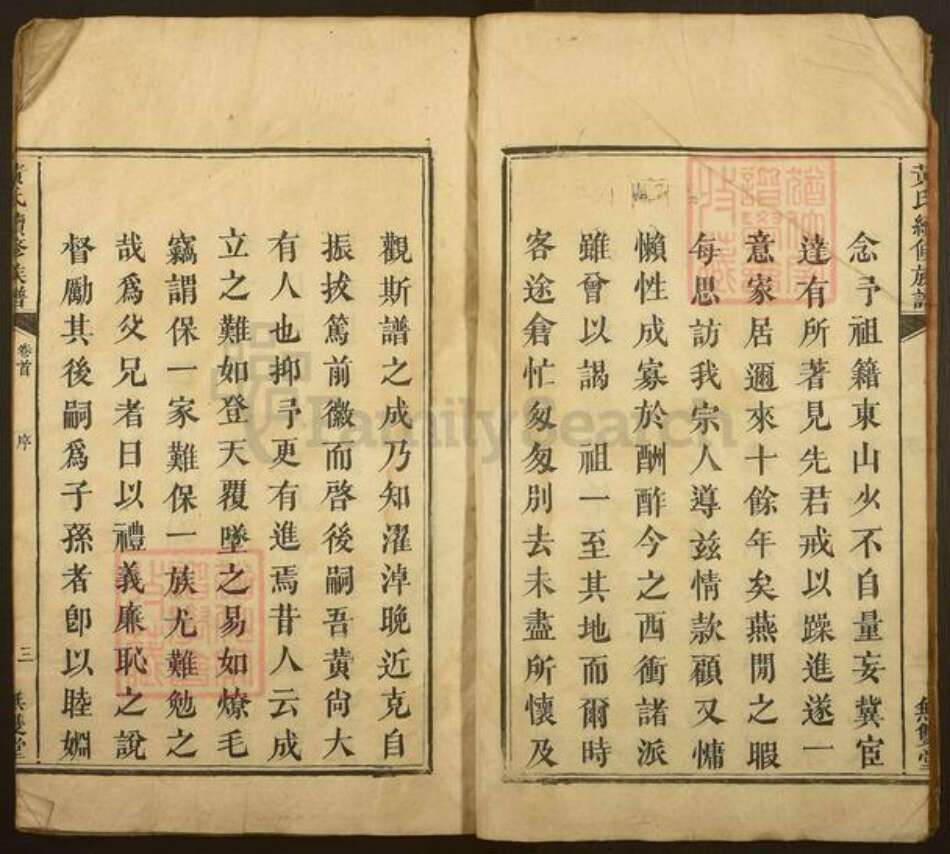 黃氏續修族譜
無雙堂
念予祖籍東山少不自量妄冀宦
達有所著見先君戒以躁進遂一
意家居邇來十餘年矣燕閒之暇
每思訪我宗人導玆情款顧又慵
懶性成寡於酬酢今之西衝諸派
雖曾以謁 祖一至其地而爾時
客途倉忙匆匆別去未盡所懷及
觀斯譜之成乃知濯淖晚近克自
振拔篤前徽而啓後嗣吾黃尙大
有人也抑予更有進焉昔人云成
立之難如登天覆墜之易如燎毛
竊謂保一家難保一族尤難勉之
哉爲父兄者日以禮義廉恥之說
督勵其後嗣爲子孫者卽以睦婣
黃氏續修族譜
卷首
序
三
無雙堂
FamilySearch